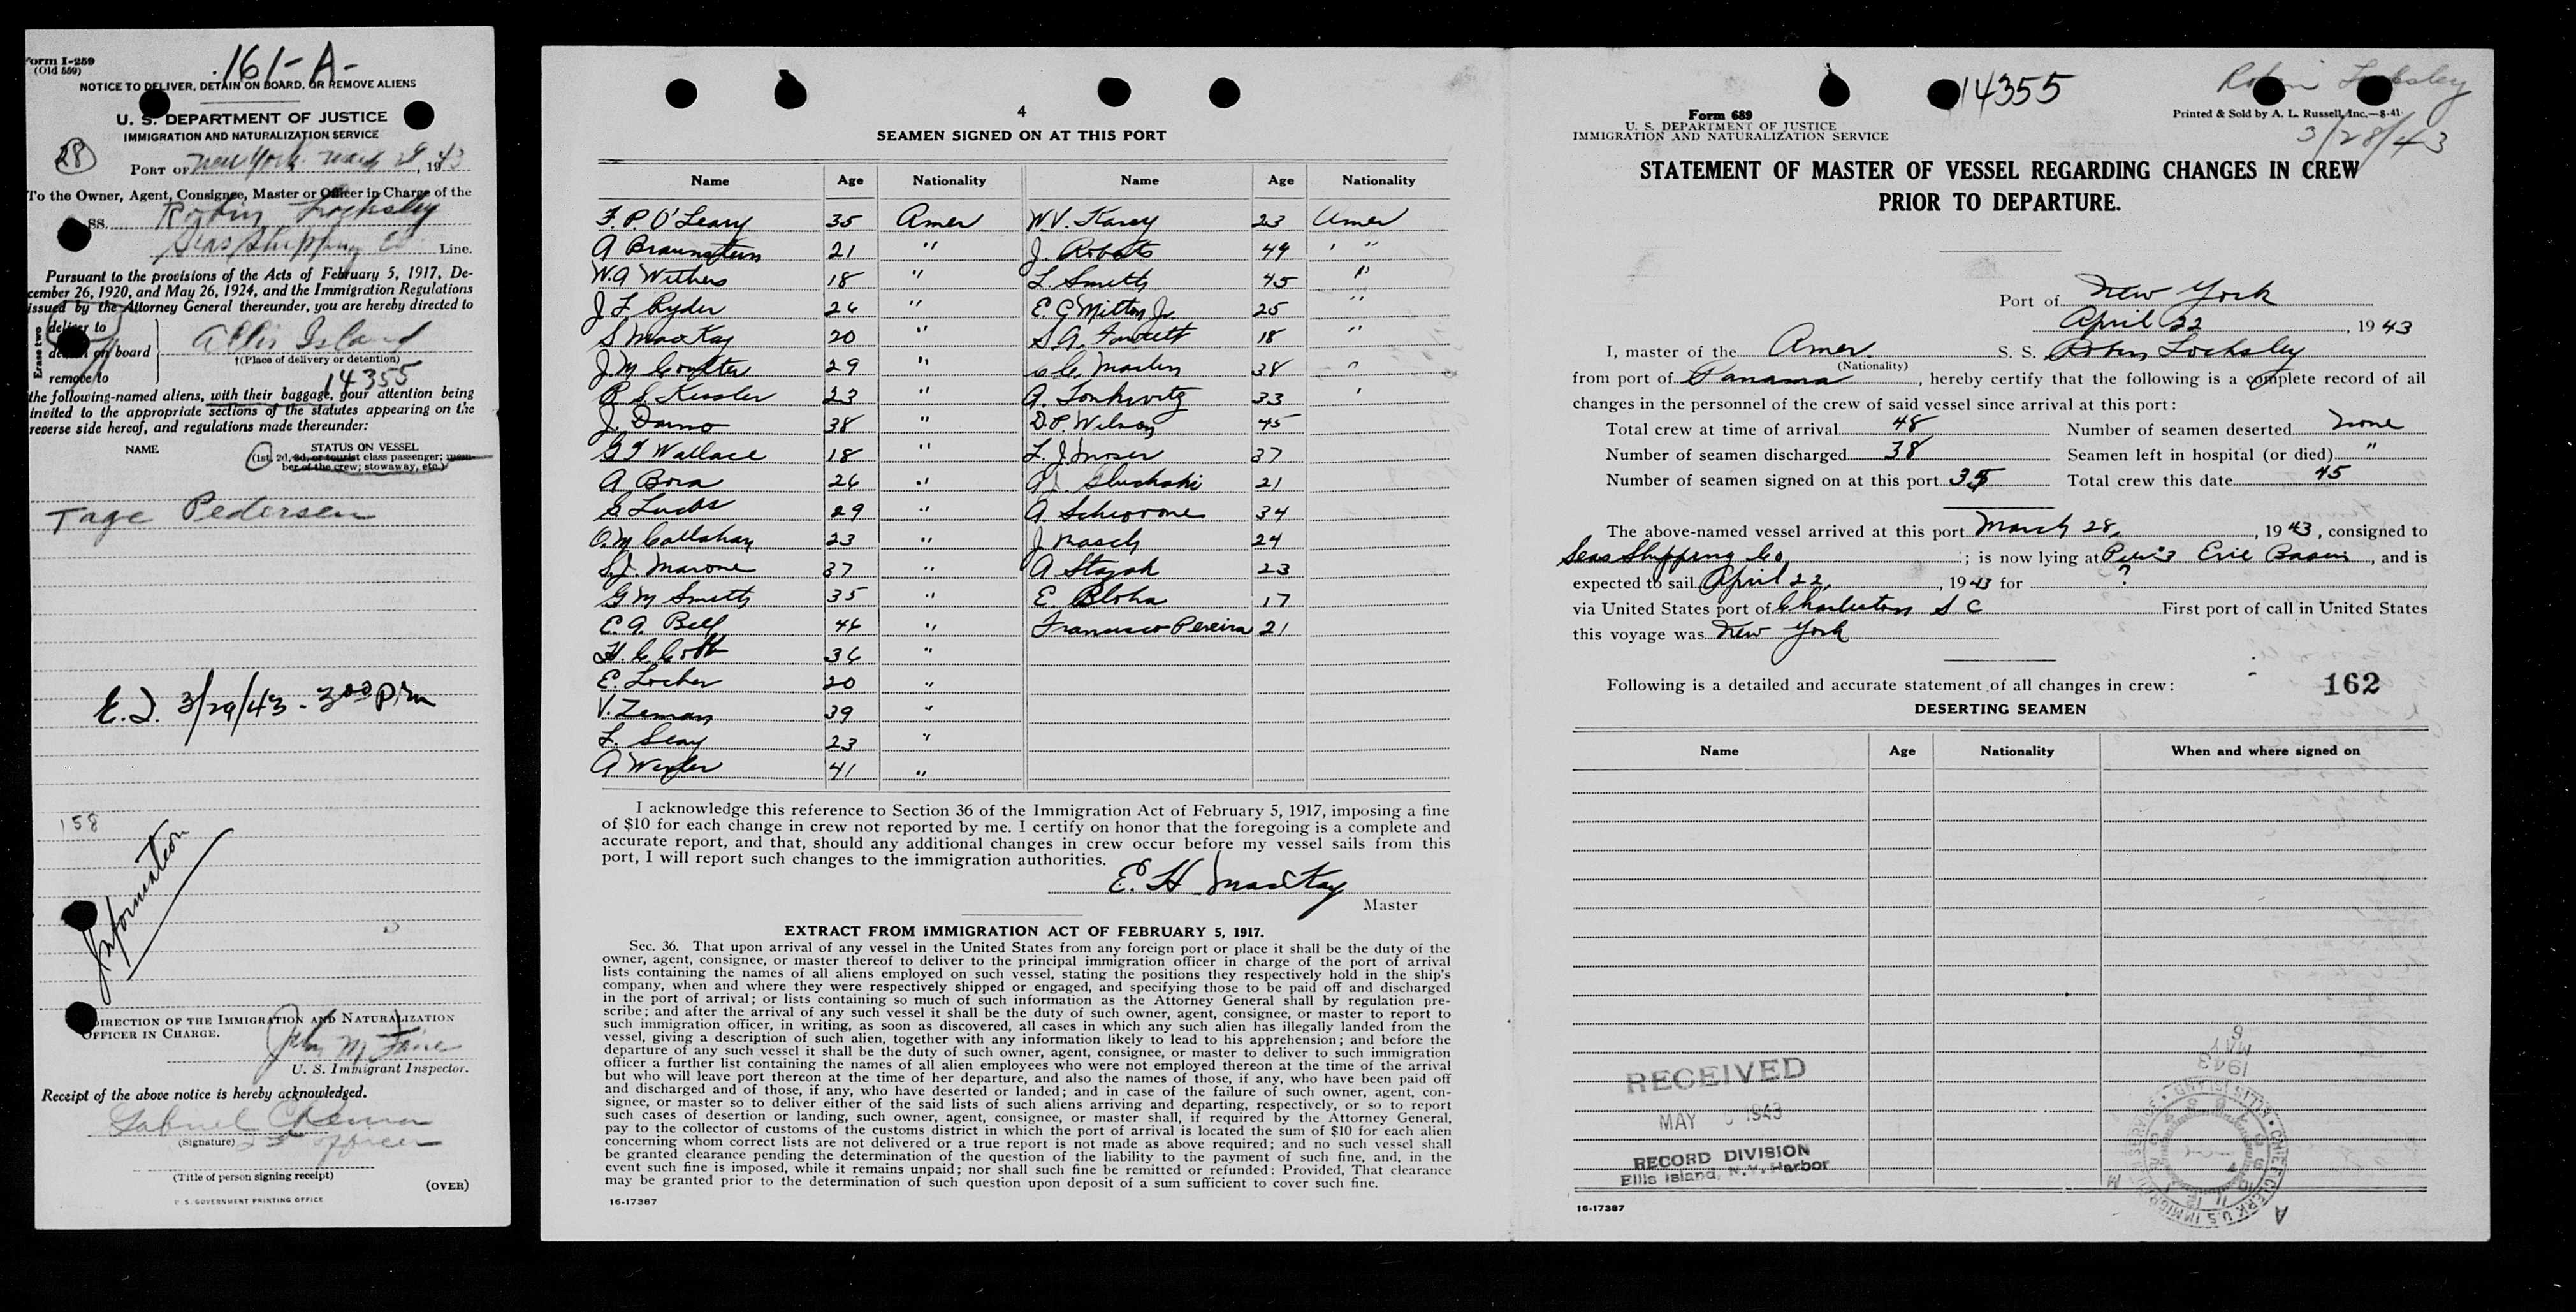 Form I-259
(Old 559)
161-A-
NOTICE TO DELIVER, DETAIN ON BOARD, OR REMOVE ALIENS
U. S. DEPARTMENT OF JUSTICE
IMMIGRATION AND NATURALIZATION SERVICE
28
PORT OF New York, 1943
To the Owner, Agent, Consignee, Master or Officer in Charge of the
SS. Robin Locksley
Seas Shipping Co Line.
Pursuant to the provisions of the Acts of February 5, 1917, De-
cember 26, 1920, and May 26, 1924, and the Immigration Regulations
issued by the Attorney General thereunder, you are hereby directed to
Erase two
deliver to
detain on board
remove to
Ellis Island
†(Place of delivery or detention)
14355
the following-named aliens, with their baggage, your attention being
invited to the appropriate sections of the statutes appearing on the
reverse side hereof, and regulations made thereunder:
NAME STATUS ON VESSEL
(1st, 2d, 3d, or tourist class passenger; mem-
ber of the crew; stowaway, etc.)
Tage Pedersen
E.I. 3/29/43 - 3 00 p.m
158
Information
DIRECTION OF THE IMMIGRATION AND NATURALIZATION
OFFICER IN CHARGE.
John M
U. S. Immigrant Inspector.
Receipt of the above notice is hereby acknowledged.
Gabriel
(Signature) officer
(Title of person signing receipt)
(OVER)
U. S. GOVERNMENT PRINTING OFFICE
4
SEAMEN SIGNED ON AT THIS PORT
Name Age Nationality Name Age Nationality
F. P. O'Leary 35 Amer W.V. Karcy 23 Amer
A Braunstein 21 " J. Roberts 49 "
W.A Withers 18 " L. Smith 45 "
J F Ryder 26 " E. G Mitton Jr. 25 "
S MacKay 20 " S. A. Fawcett 18 "
J. M Coulter 29 " C.C. Martin 38 "
R S. Kessler 23 " A. Lonkevitz 33 "
J. Damo 38 " D.P. Wilson 45
G F Wallace 18 " L. J. Moser 37
A. Bora 26 " 21
G Lucas 29 " A. Schiavone 34
O.M Callahan 23 " J Masch 24
S.J. Marone 37 " A Stayak 23
G M Smith 35 " E. Bloha 17
E. A. Bell 46 " Francisco Pereira 21
H. C. Cobb 36 "
E. Locher 20 "
V. Zeman 39 "
L. Seay 23 "
A Wexler 41 "
I acknowledge this reference to Section 36 of the Immigration Act of February 5, 1917, imposing a fine
of $10 for each change in crew not reported by me. I certify on honor that the foregoing is a complete and
accurate report, and that, should any additional changes in crew occur before my vessel sails from this
port, I will report such changes to the immigration authorities.
E. H. MacKay
Master
EXTRACT FROM IMMIGRATION ACT OF FEBRUARY 5, 1917.
Sec. 36. That upon arrival of any vessel in the United States from any foreign port or place it shall be the duty of the
owner, agent, consignee, or master thereof to deliver to the principal immigration officer in charge of the port of arrival
lists containing the names of all aliens employed on such vessel, stating the positions they respectively hold in the ship's
company, when and where they were respectively shipped or engaged, and specifying those to be paid off and discharged
in the port of arrival; or lists containing so much of such information as the Attorney General shall by regulation pre-
scribe; and after the arrival of any such vessel it shall be the duty of such owner, agent, consignee, or master to report to
such immigration officer, in writing, as soon as discovered, all cases in which any such alien has illegally landed from the
vessel, giving a description of such alien, together with any information likely to lead to his apprehension; and before the
departure of any such vessel it shall be the duty of such owner, agent, consignee, or master to deliver to such immigration
officer a further list containing the names of all alien employees who were not employed thereon at the time of the arrival
but who will leave port thereon at the time of her departure, and also the names of those, if any, who have been paid off
and discharged and of those, if any, who have deserted or landed; and in case of the failure of such owner, agent, con-
signee, or master so to deliver either of the said lists of such aliens arriving and departing, respectively, or so to report
such cases of desertion or landing, such owner, agent, consignee, or master shall, if required by the Attorney General,
pay to the collector of customs of the customs district in which the port of arrival is located the sum of $10 for each alien
concerning whom correct lists are not delivered or a true report is not made as above required; and no such vessel shall
be granted clearance pending the determination of the question of the liability to the payment of such fine, and, in the
event such fine is imposed, while it remains unpaid; nor shall such fine be remitted or refunded: Provided, That clearance
may be granted prior to the determination of such question upon deposit of a sum sufficient to cover such fine.
16-17387
14355
Robin Locksley
3/28/43
Form 689
U. S. DEPARTMENT OF JUSTICE
IMMIGRATION AND NATURALIZATION SERVICE
Printed & Sold by A. L. Russell, Inc.—8-41
STATEMENT OF MASTER OF VESSEL REGARDING CHANGES IN CREW
PRIOR TO DEPARTURE.
Port of New York
April 22, 1943
I, master of the Amer. S. S. Robin Locksley
(Nationality)
from port of Panama, hereby certify that the following is a complete record of all
changes in the personnel of the crew of said vessel since arrival at this port:
Total crew at time of arrival 48 Number of seamen deserted none
Number of seamen discharged 38 Seamen left in hospital (or died) "
Number of seamen signed on at this port 35 Total crew this date 45
The above-named vessel arrived at this port March 28, 1943, consigned to
Seas Shipping Co; is now lying at Pier 3 Erie Basin, and is
expected to sail April 22, 1943 for ?
via United States port of Charleston S C First port of call in United States
this voyage was New York
Following is a detailed and accurate statement of all changes in crew:
162
DESERTING SEAMEN
Name Age Nationality When and where signed on
RECEIVED
MAY 1943
RECORD DIVISION
Ellis Island, N.Y. Harbor
MAY 6 1943
CHIEF CLERK U.S. IMMIGRATION SERVICE • ELLIS ISLAND •
16-17387